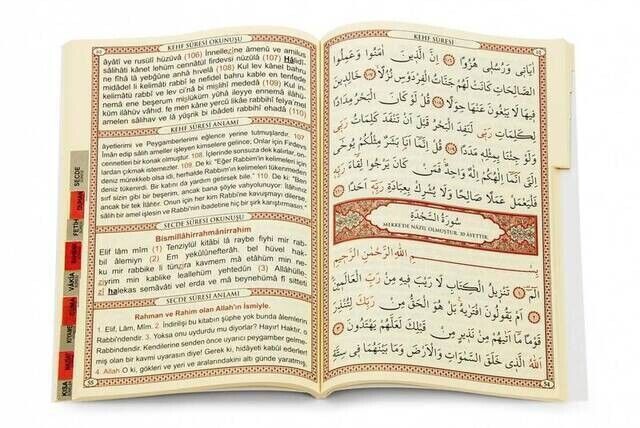 KEHF SÛRESİ OKUNUŞU
âyâtî ve rusulî hüzüvâ (106) İnnellezîne âmenû ve amilus
sâlihâti kânet lehüm cennâtül firdevsi nüzülâ (107) Hâlidî-
ne fîhâ lâ yebğûne anhâ hivelâ (108) Kul lev kânel bahru
midâdel li kelimâti rabbî le nefidel bahru kable en tenfede
kelimâtü rabbî ve lev ci'nâ bi mislihî mededâ (109) Kul in-
nemâ ene beşerum mislüküm yûhâ ileyye ennemâ ilâhü-
küm ilâhüv vâhıd, fe men kâne yercû likâe rabbihî felya'mel
amelen sâlihav ve lâ yüşrik bi ibâdeti rabbihî ehadâ (110)
KEHF SÛRESİ ANLAMI
âyetlerimi ve Peygamberlerimi eğlence yerine tutmuşlardır. 107
İman edip salih ameller işleyen kimselere gelince; Onlar için Firdevs
cennetleri bir konak olmuştur. 108. İçlerinde sonsuza dek kalırlar, on-
lardan çıkmak istemezler. 109. De ki: "Eğer Rabbim'in kelimeleri için
deniz mürekkeb olsa idi, herhalde Rabbim'in kelimeleri tükenmeden
deniz tükenirdi. Bir katını da yardım getirsek bile." 110. De ki: "Ben
sırf sizin gibi bir beşerim, ancak bana şöyle vahyolunuyor: İlâhınız
ancak bir tek İlâhtır. Onun için her kim Rabbi'ne kavuşmayı dilerse,
salih bir amel işlesin ve Rabbi'nin ibadetine hiç bir şirk karıştırmasın."
SECDE SÛRESİ OKUNUŞU
Bismillâhirrahmânirrahim
Elif lâm mîm (1) Tenzîylül kitâbi lâ raybe fîyhi mir rab-
bil âlemiyn (2) Em yekûlûnefterâh, bel hüvel hak-
ku mir rabbike li tünzira kavmem mâ etâhüm min ne-
ziyrim min kablike leallehüm yehtedûn (3) Allâhülle-
zî halekas semâvâti vel erda ve mâ beynehümâ fî sitteti
SECDE SÛRESİ ANLAMI
Rahman ve Rahim olan Allah'ın İsmiyle.
1. Elif, Lâm, Mîm. 2. İndirilişi bu kitabın şüphe yok bunda âlemlerin
Rabbi'ndendir. 3. Yoksa onu uydurdu mu diyorlar? Hayır! Haktır, o
Rabbi'ndendir. Kendilerine senden önce uyarıcı peygamber gelme-
miş olan bir kavmi uyarasın diye! Gerek ki, hidâyeti kabul ederler!
4. Allah O ki, gökleri ve yeri ve aralarındakini altı günde yaratmış,
55
SECDE
DUHAN
FETİH
VAKIA
KEHF SÛRESİ
اٰيَاتٖى وَرُسُلٖى هُزُوًا ﴿١٠٦﴾ اِنَّ الَّذٖينَ اٰمَنُوا وَعَمِلُوا
الصَّالِحَاتِ كَانَتْ لَهُمْ جَنَّاتُ الْفِرْدَوْسِ نُزُلًا ﴿١٠٧﴾ خَالِدٖينَ
فٖيهَا لَا يَبْغُونَ عَنْهَا حِوَلًا ﴿١٠٨﴾ قُلْ لَوْ كَانَ الْبَحْرُ مِدَادًا
لِكَلِمَاتِ رَبّٖى لَنَفِدَ الْبَحْرُ قَبْلَ اَنْ تَنْفَدَ كَلِمَاتُ رَبّٖى
وَلَوْ جِئْنَا بِمِثْلِهٖ مَدَدًا ﴿١٠٩﴾ قُلْ اِنَّمَا اَنَا بَشَرٌ مِثْلُكُمْ يُوحٰٓى
اِلَىَّ اَنَّمَا اِلٰهُكُمْ اِلٰهٌ وَاحِدٌ فَمَنْ كَانَ يَرْجُوا لِقَاءَ رَبِّهٖ
فَلْيَعْمَلْ عَمَلًا صَالِحًا وَلَا يُشْرِكْ بِعِبَادَةِ رَبِّهٖ اَحَدًا ﴿١١٠﴾
سُورَةُ السَّجْدَةِ
MEKKE'DE NÂZİL OLMUŞTUR. 30 ÂYETTİR.
بِسْمِ اللّٰهِ الرَّحْمٰنِ الرَّحٖيمِ
الٓمٓ ﴿١﴾ تَنْزٖيلُ الْكِتَابِ لَا رَيْبَ فٖيهِ مِنْ رَبِّ الْعَالَمٖينَ
﴿٢﴾ اَمْ يَقُولُونَ افْتَرٰيهُ بَلْ هُوَ الْحَقُّ مِنْ رَبِّكَ لِتُنْذِرَ
قَوْمًا مَا اَتٰيهُمْ مِنْ نَذٖيرٍ مِنْ قَبْلِكَ لَعَلَّهُمْ يَهْتَدُونَ ﴿٣﴾
اَللّٰهُ الَّذٖى خَلَقَ السَّمٰوَاتِ وَالْاَرْضَ وَمَا بَيْنَهُمَا فٖى سِتَّةِ
54